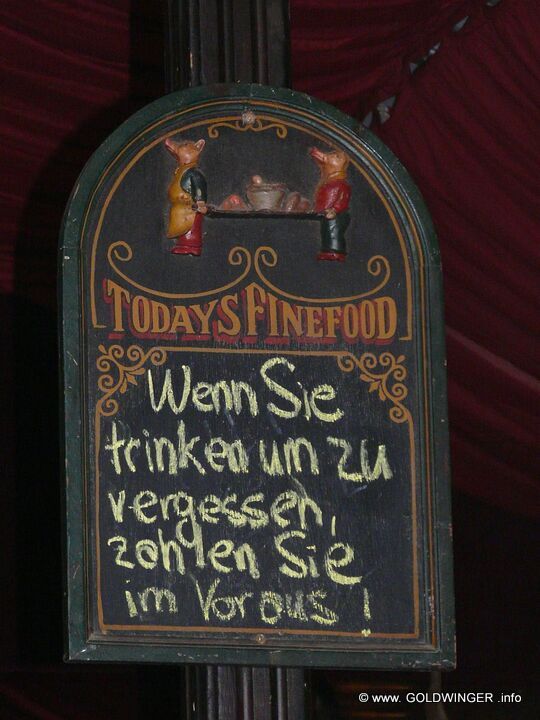 TODAYS FINEFOOD
Wenn Sie
trinken um zu
vergessen,
zahlen Sie
im Voraus!
© www. GOLDWINGER .info